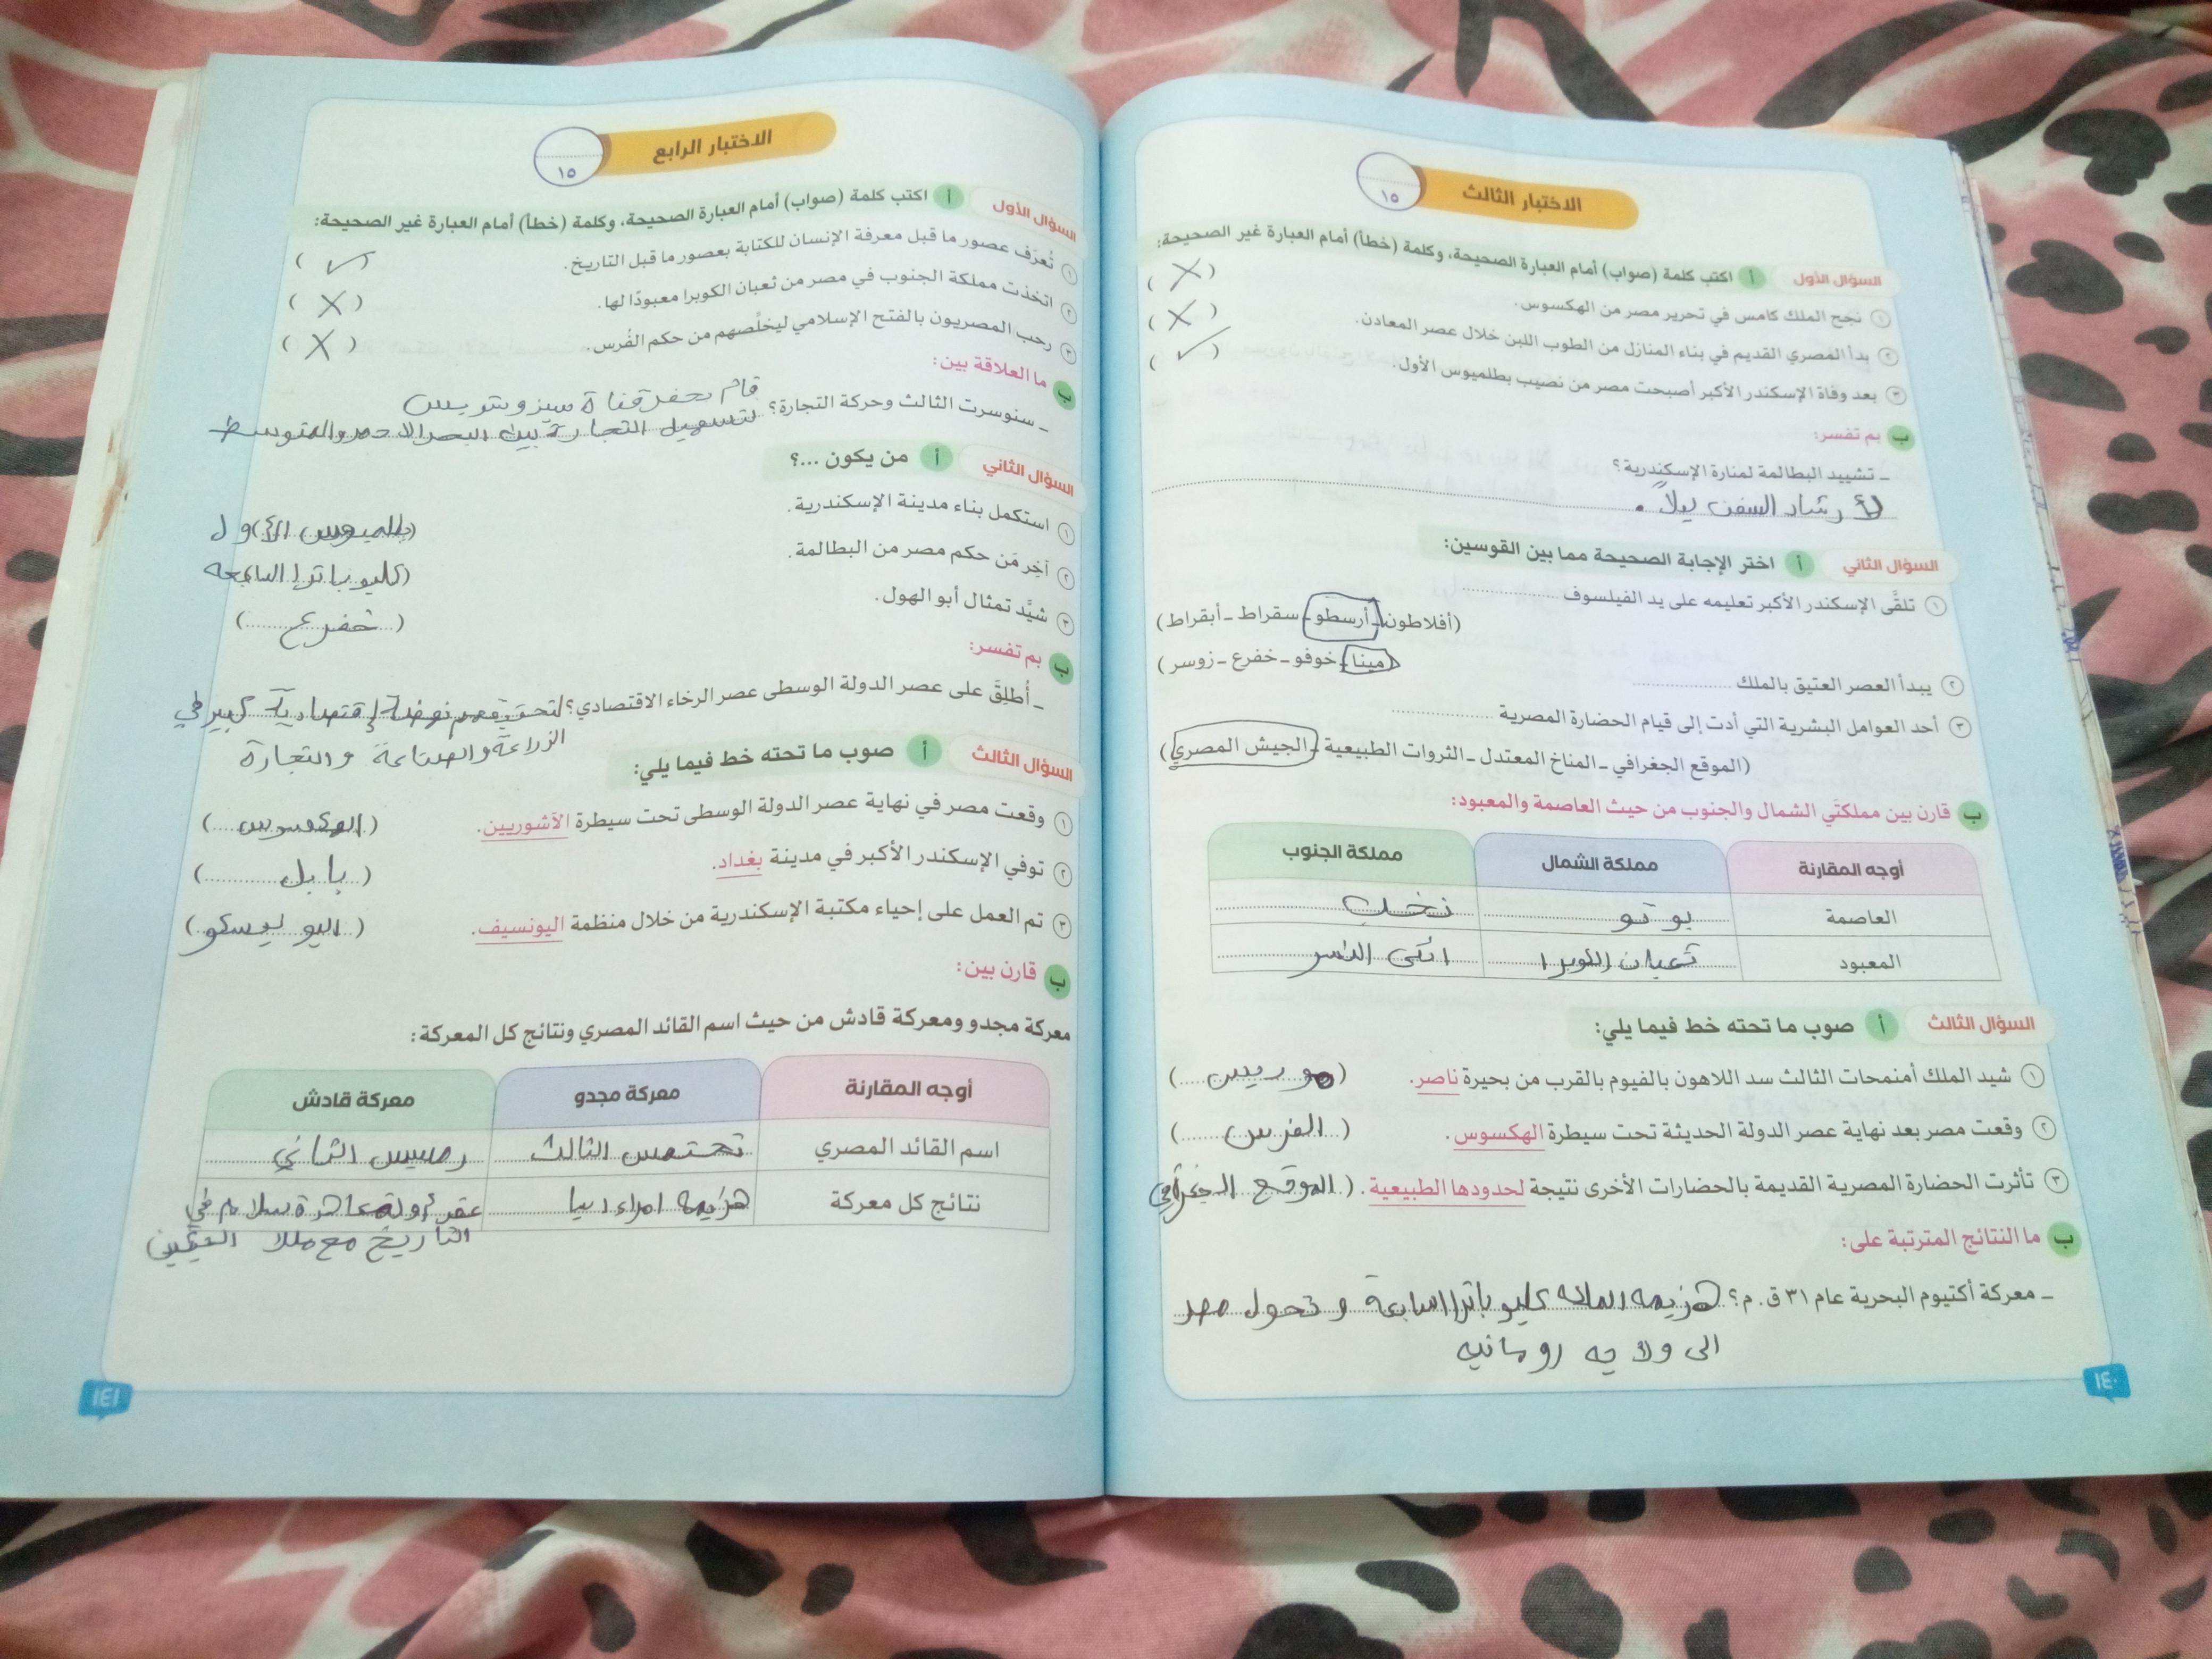 الاختبار الثالث
١٥
السؤال الأول أ اكتب كلمة (صواب) أمام العبارة الصحيحة، وكلمة (خطأ) أمام العبارة غير الصحيحة:
١ نجح الملك كامس في تحرير مصر من الهكسوس. (X)
٢ بدأ المصري القديم في بناء المنازل من الطوب اللبن خلال عصر المعادن. (X)
٣ بعد وفاة الإسكندر الأكبر أصبحت مصر من نصيب بطلميوس الأول. (✓)
ب بم تفسر:
ـ تشييد البطالمة لمنارة الإسكندرية؟
لأرشاد السفن ليلاً.
السؤال الثاني أ اختر الإجابة الصحيحة مما بين القوسين:
١ تلقَّى الإسكندر الأكبر تعليمه على يد الفيلسوف
(أفلاطون ـ أرسطو ـ سقراط ـ أبقراط)
٢ يبدأ العصر العتيق بالملك
(مينا ـ خوفو ـ خفرع ـ زوسر)
٣ أحد العوامل البشرية التي أدت إلى قيام الحضارة المصرية
(الموقع الجغرافي ـ المناخ المعتدل ـ الثروات الطبيعية ـ الجيش المصري)
ب قارن بين مملكتَي الشمال والجنوب من حيث العاصمة والمعبود:
أوجه المقارنة مملكة الشمال مملكة الجنوب
العاصمة بوتو نخب
المعبود ثعبان الكوبرا انثى النسر
السؤال الثالث أ صوب ما تحته خط فيما يلي:
١ شيد الملك أمنمحات الثالث سد اللاهون بالفيوم بالقرب من بحيرة ناصر. (موريس)
٢ وقعت مصر بعد نهاية عصر الدولة الحديثة تحت سيطرة الهكسوس. (الفرس)
٣ تأثرت الحضارة المصرية القديمة بالحضارات الأخرى نتيجة لحدودها الطبيعية. (الموقع الجغرافي)
ب ما النتائج المترتبة على:
ـ معركة أكتيوم البحرية عام ٣١ ق. م؟ هزيمه الملكه كليوباترا السابعة و تحول مصر
الى ولايه رومانيه
١٤٠
الاختبار الرابع
١٥
السؤال الأول أ اكتب كلمة (صواب) أمام العبارة الصحيحة، وكلمة (خطأ) أمام العبارة غير الصحيحة:
١ تُعرَف عصور ما قبل معرفة الإنسان للكتابة بعصور ما قبل التاريخ. (✓)
٢ اتخذت مملكة الجنوب في مصر من ثعبان الكوبرا معبودًا لها. (X)
٣ رحب المصريون بالفتح الإسلامي ليخلِّصهم من حكم الفُرس. (X)
ب ما العلاقة بين:
ـ سنوسرت الثالث وحركة التجارة؟ قام بحفر قناة سيزوستريس
لتسهيل التجارة بين البحر الاحمر والمتوسط
السؤال الثاني أ من يكون ...؟
١ استكمل بناء مدينة الإسكندرية. (بطلميوس الأول)
٢ آخِر مَن حكم مصر من البطالمة. (كليوباترا السابعه)
٣ شيَّد تمثال أبو الهول. (خفرع)
ب بم تفسر:
ـ أُطلِقَ على عصر الدولة الوسطى عصر الرخاء الاقتصادي؟ لتحقيق مصر نهضة إقتصادية كبير في
الزراعة والصناعة والتجارة
السؤال الثالث أ صوب ما تحته خط فيما يلي:
١ وقعت مصر في نهاية عصر الدولة الوسطى تحت سيطرة الآشوريين. (الهكسوس)
٢ توفي الإسكندر الأكبر في مدينة بغداد. (بابل)
٣ تم العمل على إحياء مكتبة الإسكندرية من خلال منظمة اليونسيف. (اليونيسكو)
ب قارن بين:
معركة مجدو ومعركة قادش من حيث اسم القائد المصري ونتائج كل المعركة:
أوجه المقارنة معركة مجدو معركة قادش
اسم القائد المصري تحتمس الثالث رمسيس الثاني
نتائج كل معركة هزيمه امراء اسيا عقد أول معاهدة سلام في
التاريخ مع ملك الحيثيين
١٤١